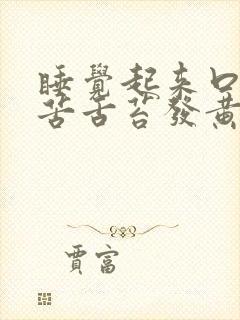 睡覺起來口
苦舌苔發黃
賈富